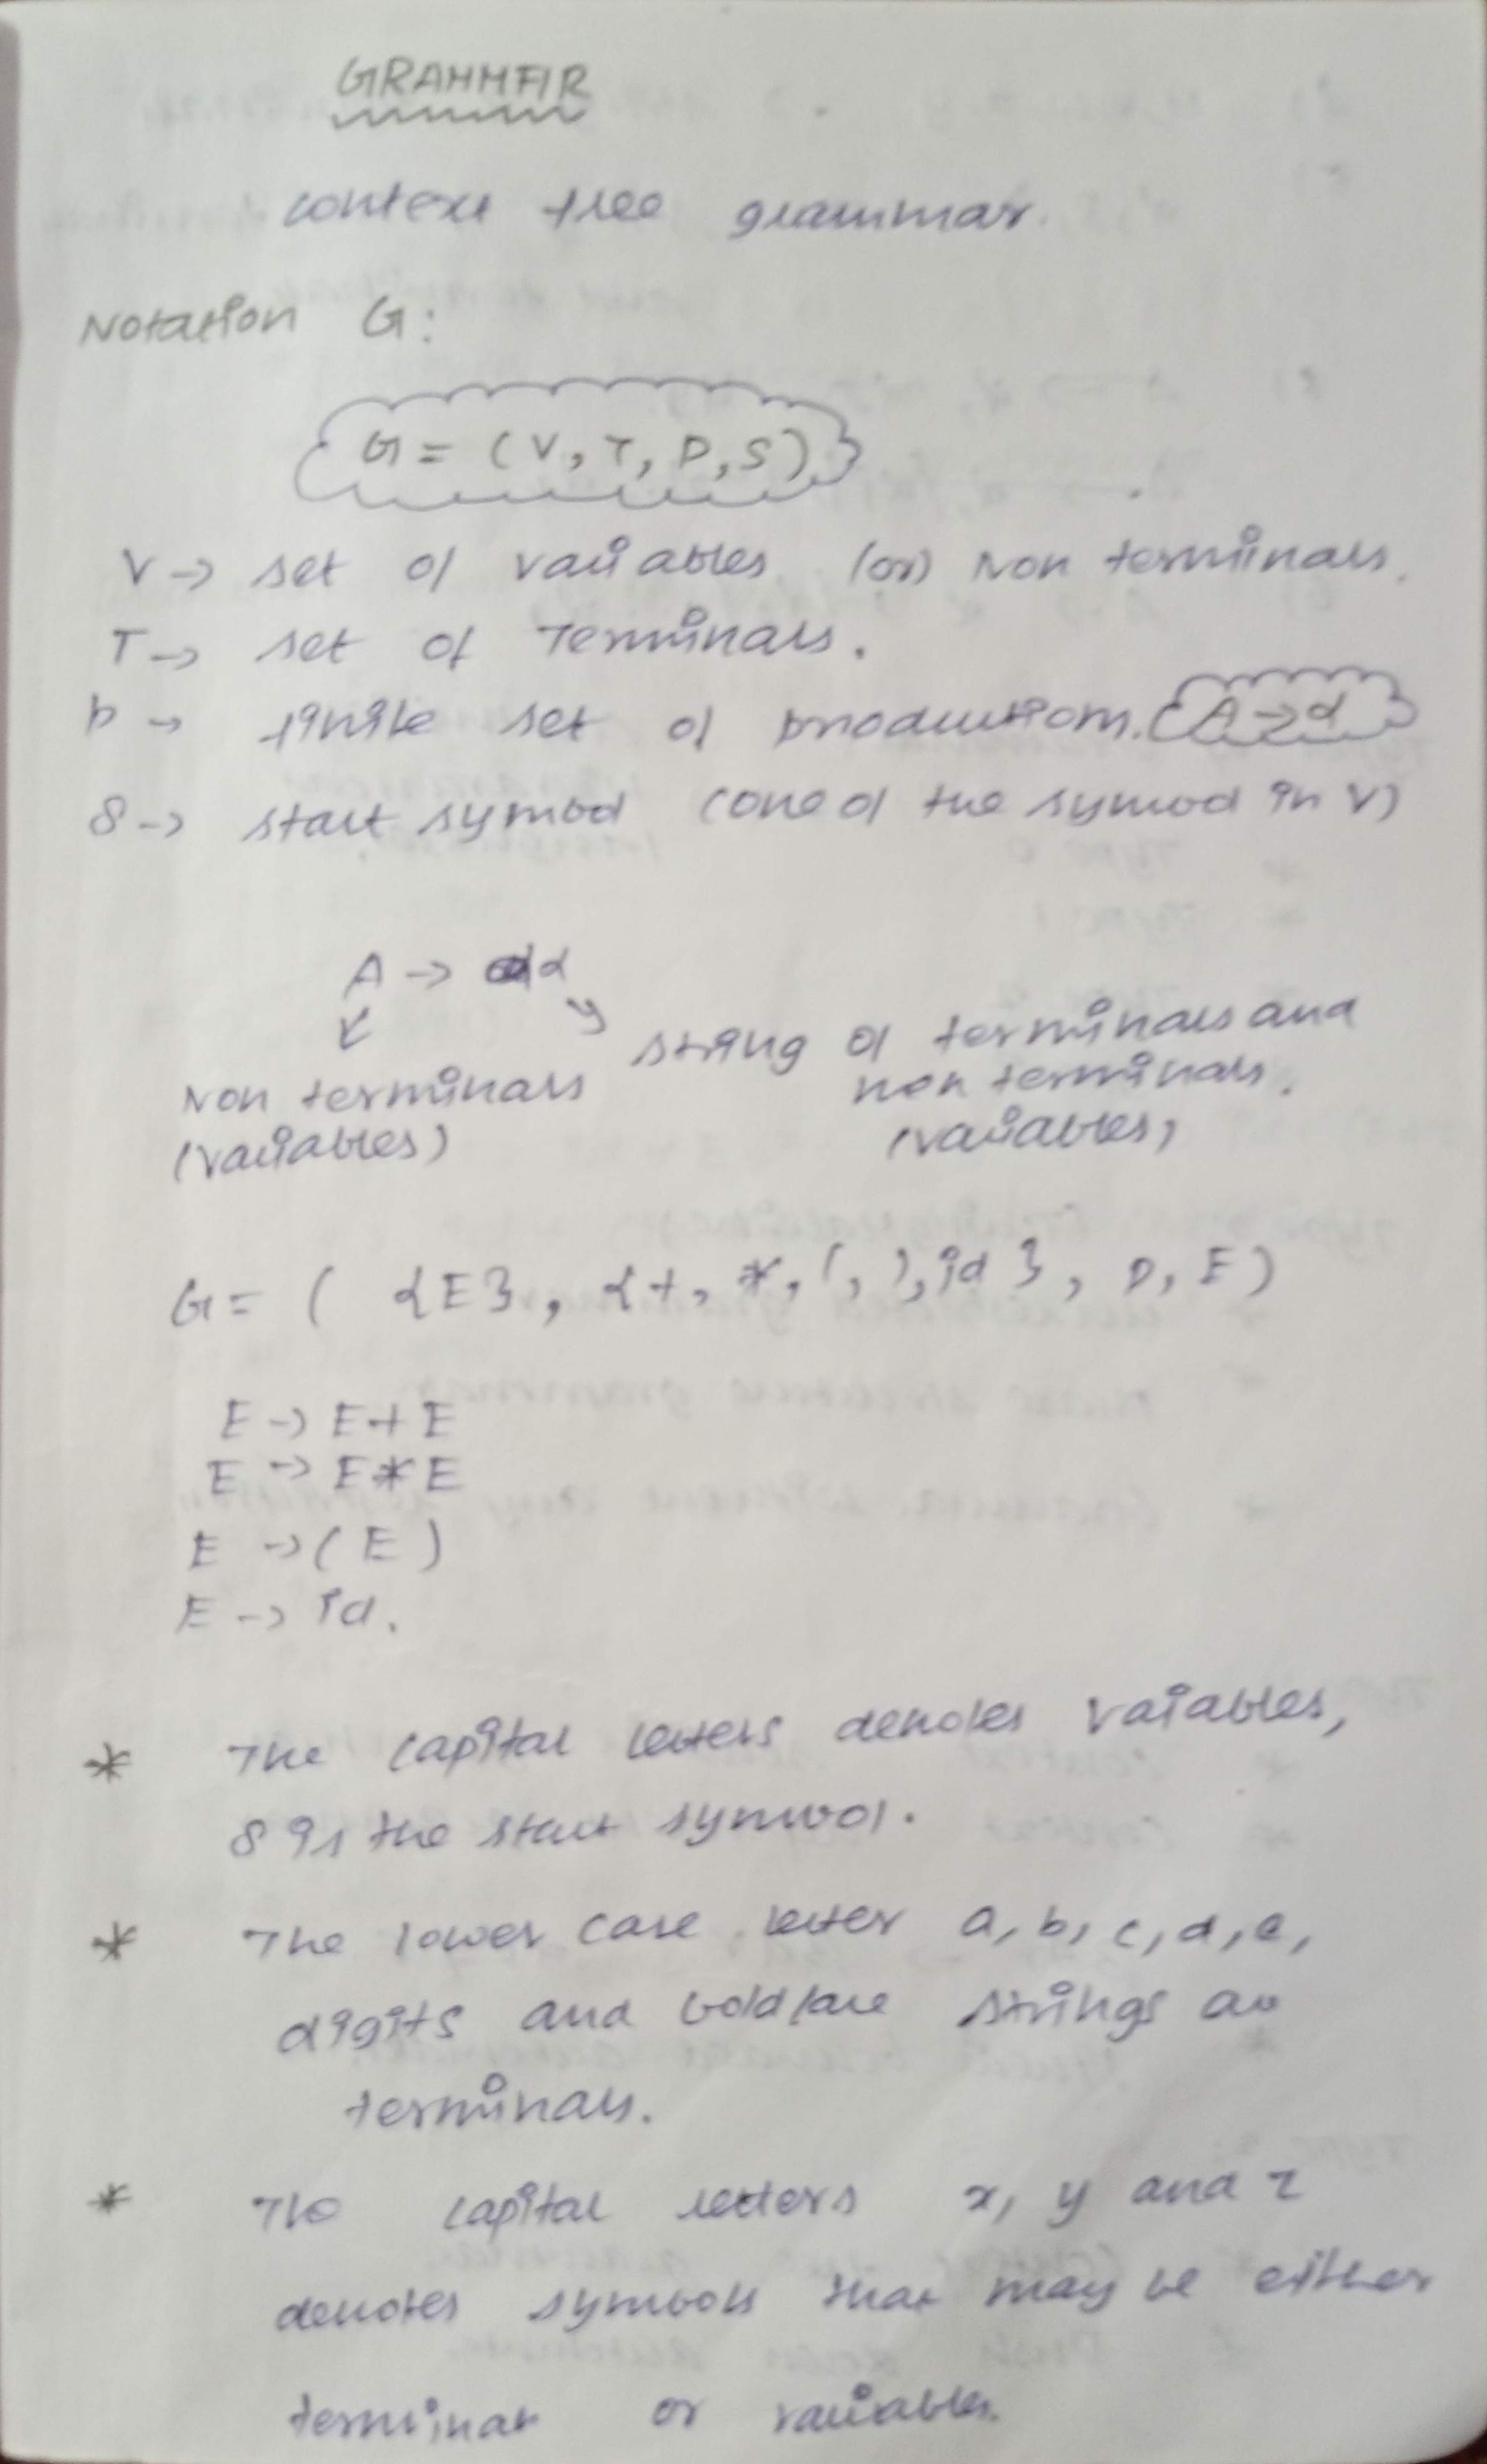 GRAMMAR
context free grammar.
Notation G:
G = (V, T, P, S)
V → set of variables (or) Non terminals.
T → set of Terminals.
P → finite set of productions. A → α
S → start symbol (one of the symbol in V)
A → α
Non terminals
(variables)
string of terminals and
non terminals.
(variables)
G = ( {E}, {+, *, (, ), id }, P, E)
E → E+E
E → E*E
E → (E)
E → id.
* The capital letters denotes vaiables,
S is the start symbol.
* The lower case letter a, b, c, d, e,
digits and boldface strings are
terminals.
* The capital letters x, y and z
denotes symbols that may be either
terminal or variables.